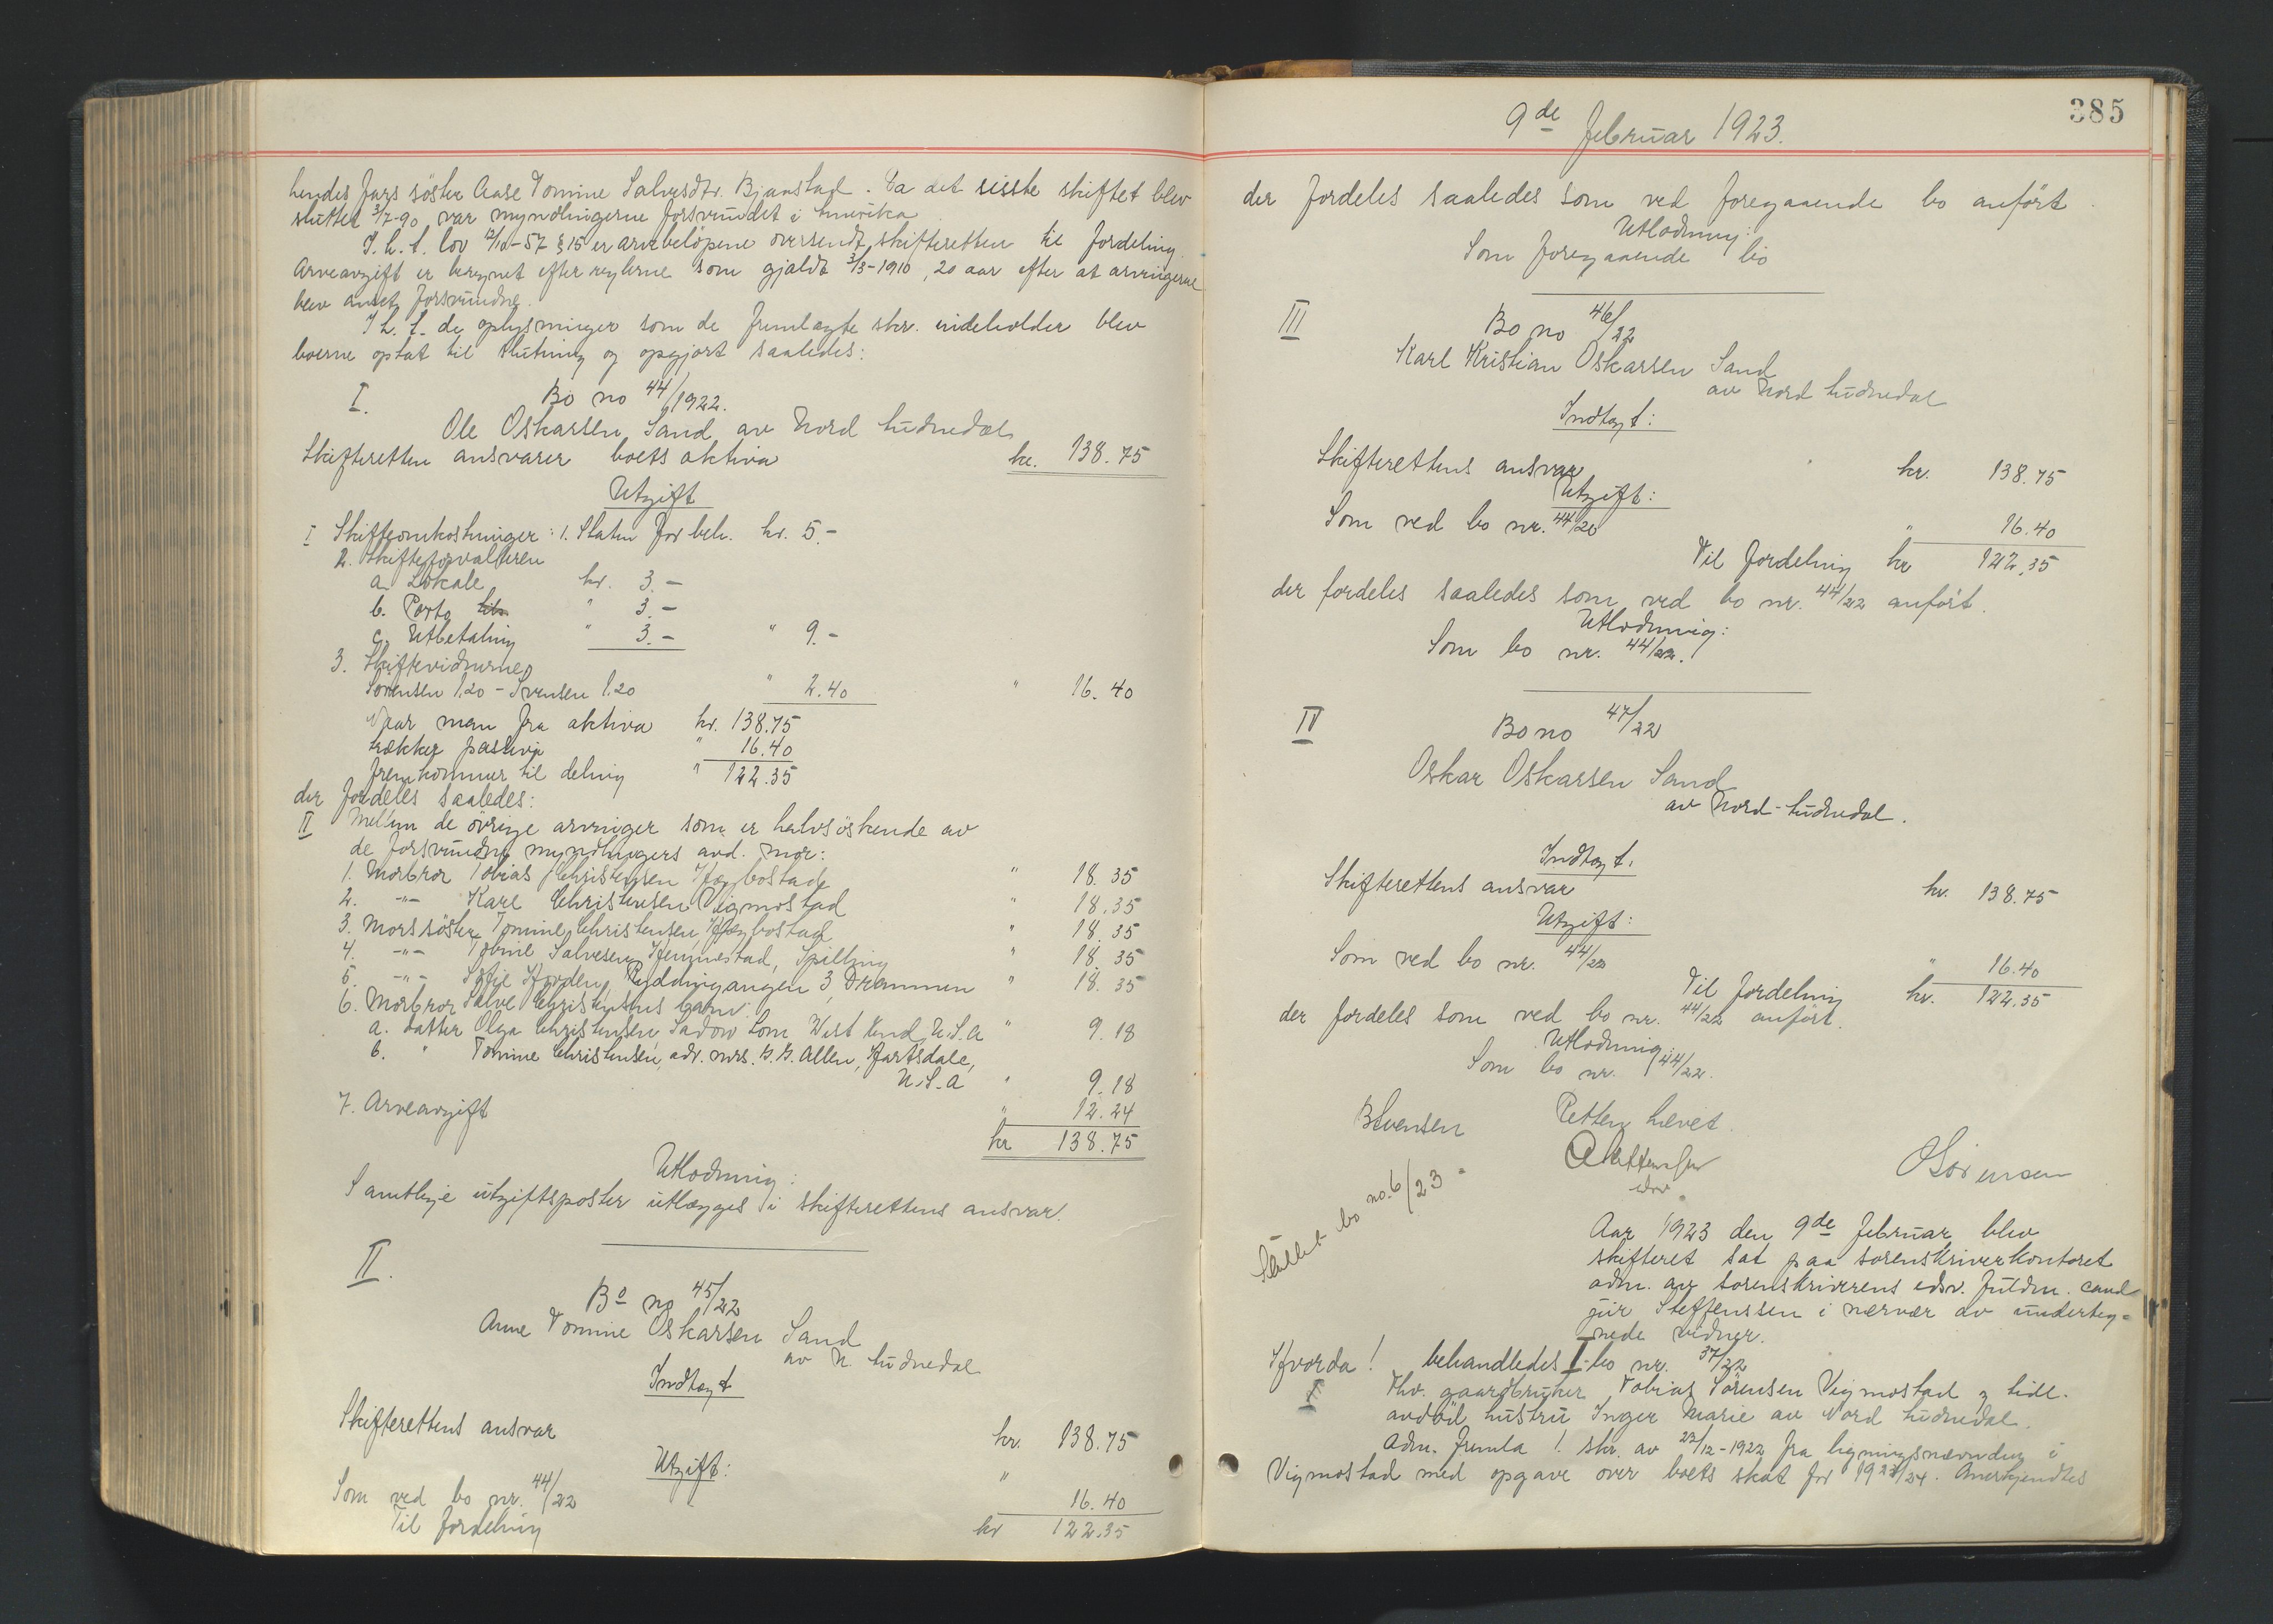 hendes fars söster Aase Tomine Salvesdtr. Bjaastad. Da det sisste skiftet blev
sluttet 3/7-90 var myndlingerne forsvundet i Amerika
I. h. t. lov 12/10-57 § 15 er arvebelöpene oversendt skifteretten til fordeling.
Arveavgift er beregnet efter reglerne som gjaldt 3/3-1910, 20 aar efter at arvingerne
blev anset forsvundne.
I h. t. de oplysninger som de fremlagte skr. indeholder blev
boerne optat til slutning og opgjort saaledes:
I. Bo no 44/1922.
Ole Oskarsen Sand av Nord Audnedal
Skifteretten ansvarer boets aktiva kr. 138.75
Utgift
I Skifteomkostninger: 1. Staten for beh. kr. 5.-
2. Skifteforvalteren
a. Lokale kr. 3.-
b. Porto " 3.-
c. Utbetaling " 3.- " 9.-
3. Skiftevidnerne
Sörensen 1.20 - Svensen 1.20 " 2.40 " 16.40
Naar man fra aktiva kr. 138.75
trækker passiva " 16.40
fremkommer til deling " 122.35
der fordeles saaledes:
II Mellem de övrige arvinger som er halvsöskende av
de forsvundne myndlingers avd. mor:
1. Morbror Tobias Christensen Hægbostad " 18.35
2. -"- Karl Christensen Vigmostad " 18.35
3. Morssöster Tomine Christensen Hægbostad " 18.35
4. -"- Tobine Salvesen Hennestad, Spilling " 18.35
5. -"- Sofie Horden, Ryddingangen 3, Drammen " 18.35
6. Morbror Salve Christensens barn:
a. datter Olga Christensen, Sadow Lom West End, U.S.A " 9.18
b. " Tomine Christensen, adr. mrs. G. G. Allen, Hartsdale,
U.S.A " 9.18
7. Arveavgift " 12.24
kr 138.75
Utlodning:
Samtlige utgiftsposter utlægges i skifterettens ansvar.
II.
Bo no 45/22
Anne Tomine Oskarsen Sand
av N. Audnedal
Indtægt
Skifterettens ansvar kr. 138.75
Utgift:
Som ved bo nr. 44/22 " 16.40
Til fordeling kr 122.35
385
9de februar 1923.
der fordeles saaledes som ved foregaaende bo anfört.
Utlodning:
Som foregaaende bo
III Bo no 46/22
Karl Kristian Oskarsen Sand
av Nord Audnedal
Indtægt:
Skifterettens ansvar kr. 138.75
Utgift:
Som ved bo nr. 44/20 " 16.40
Til fordeling kr 122.35
der fordeles saaledes som ved bo nr. 44/22 anfört.
Utlodning:
Som bo nr. 44/22.
IV Bo no 47/22
Oskar Oskarsen Sand
av Nord-Audnedal.
Indtægt.
Skifterettens ansvar kr. 138.75
Utgift:
Som ved bo nr. 44/22 " 16.40
Til fordeling kr. 122.35
der fordeles som ved bo nr. 44/22 anfört.
Utlodning:
Som bo nr. 44/22.
Retten hævet.
BSvensen
edsv.
OSörensen
Sluttet bo no. 6/23
Aar 1923 den 9de februar blev
skifteret sat paa sorenskriverkontoret
adm. av sorenskriverens edsv. fuldm. cand
jur Steffenssen i nærvær av underteg=
nede vidner.
Hvorda! behandledes I. bo nr. 37/22
I Fhv. gaardbruker Tobias Sörensen Vigmostad og tidl.
avdöd hustru Inger Marie av Nord Audnedal.
Adm. fremla 1. skr. av 22/12-1922 fra ligningsnævnden i
Vigmostad med opgave over boets skat for 1923/24. Anerkjendtes